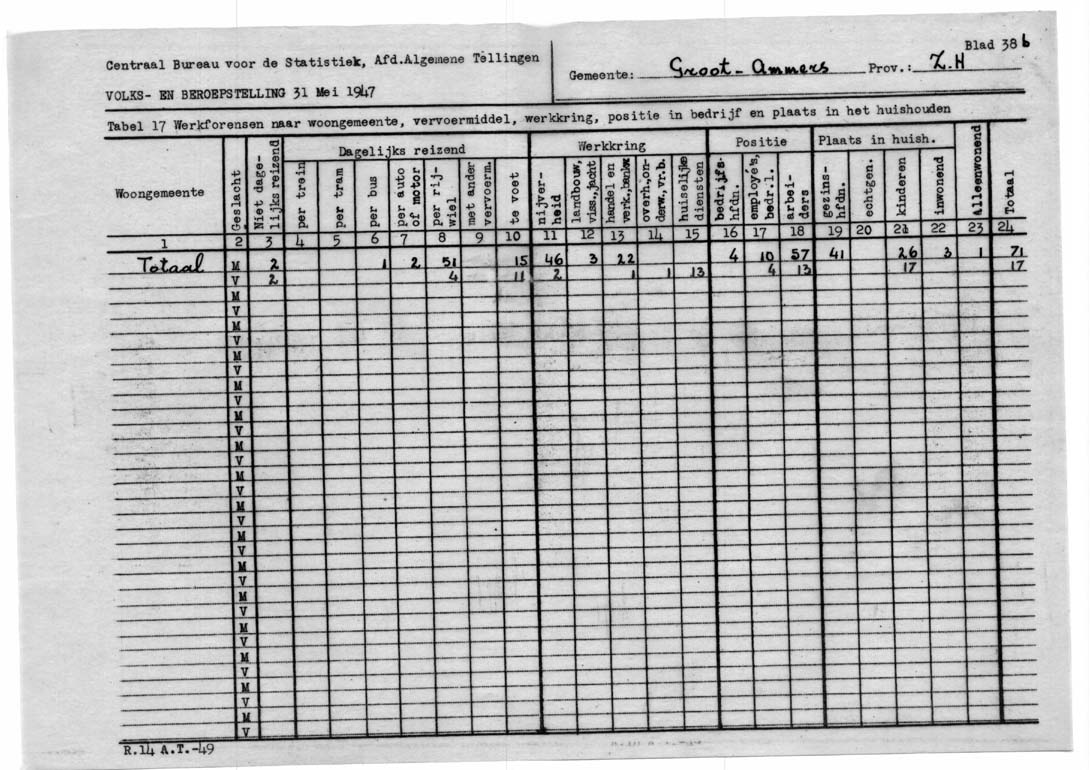 Centraal Bureau voor de Statistiek, Afd.Algemene Tellingen
VOLKS- EN BEROEPSTELLING 31 Mei 1947
Gemeente: Groot-Ammers Prov.: Z.H
Blad 38 b
Tabel 17 Werkforensen naar woongemeente, vervoermiddel, werkkring, positie in bedrijf en plaats in het huishouden
Woongemeente
Geslacht
Niet dage-
lijks reizend
Dagelijks reizend
per trein
per tram
per bus
per auto
of motor
per rij-
wiel
met ander
vervoerm.
te voet
Werkkring
nijver-
heid
landbouw,
viss.,jacht
handel en
verk.,bankw
overh.,on-
derw.,vr.b.
huiselijke
diensten
Positie
bedrijfs-
hfdn.
employé's,
bedr.l.
arbei-
ders
Plaats in huish.
gezins-
hfdn.
echtgen.
kinderen
inwonend
Alleenwonend
Totaal
1 2 3 4 5 6 7 8 9 10 11 12 13 14 15 16 17 18 19 20 21 22 23 24
Totaal M 2 1 2 51 15 46 3 22 4 10 57 41 26 3 1 71
V 2 4 11 2 1 1 13 4 13 17 17
M
V
M
V
M
V
M
V
M
V
M
V
M
V
M
V
M
V
M
V
M
V
M
V
M
V
M
V
M
V
R.14 A.T.-49